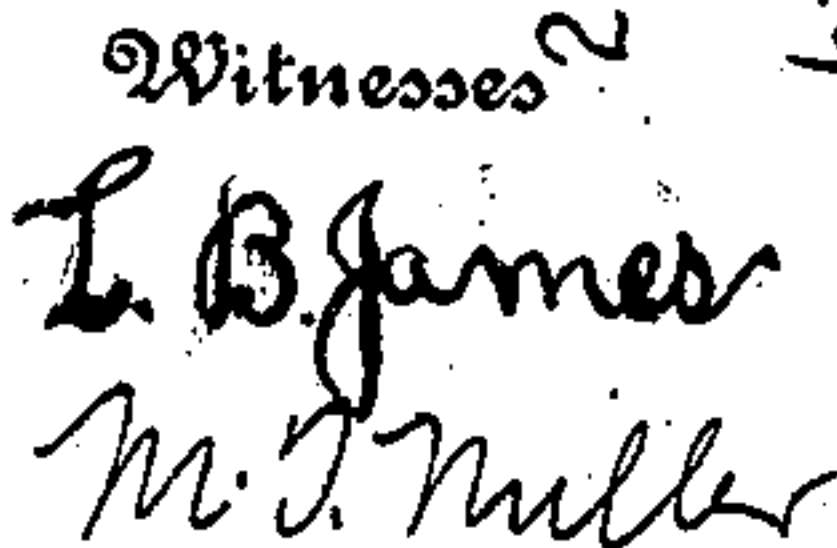 Witnesses
L. B. James
M. T. Miller